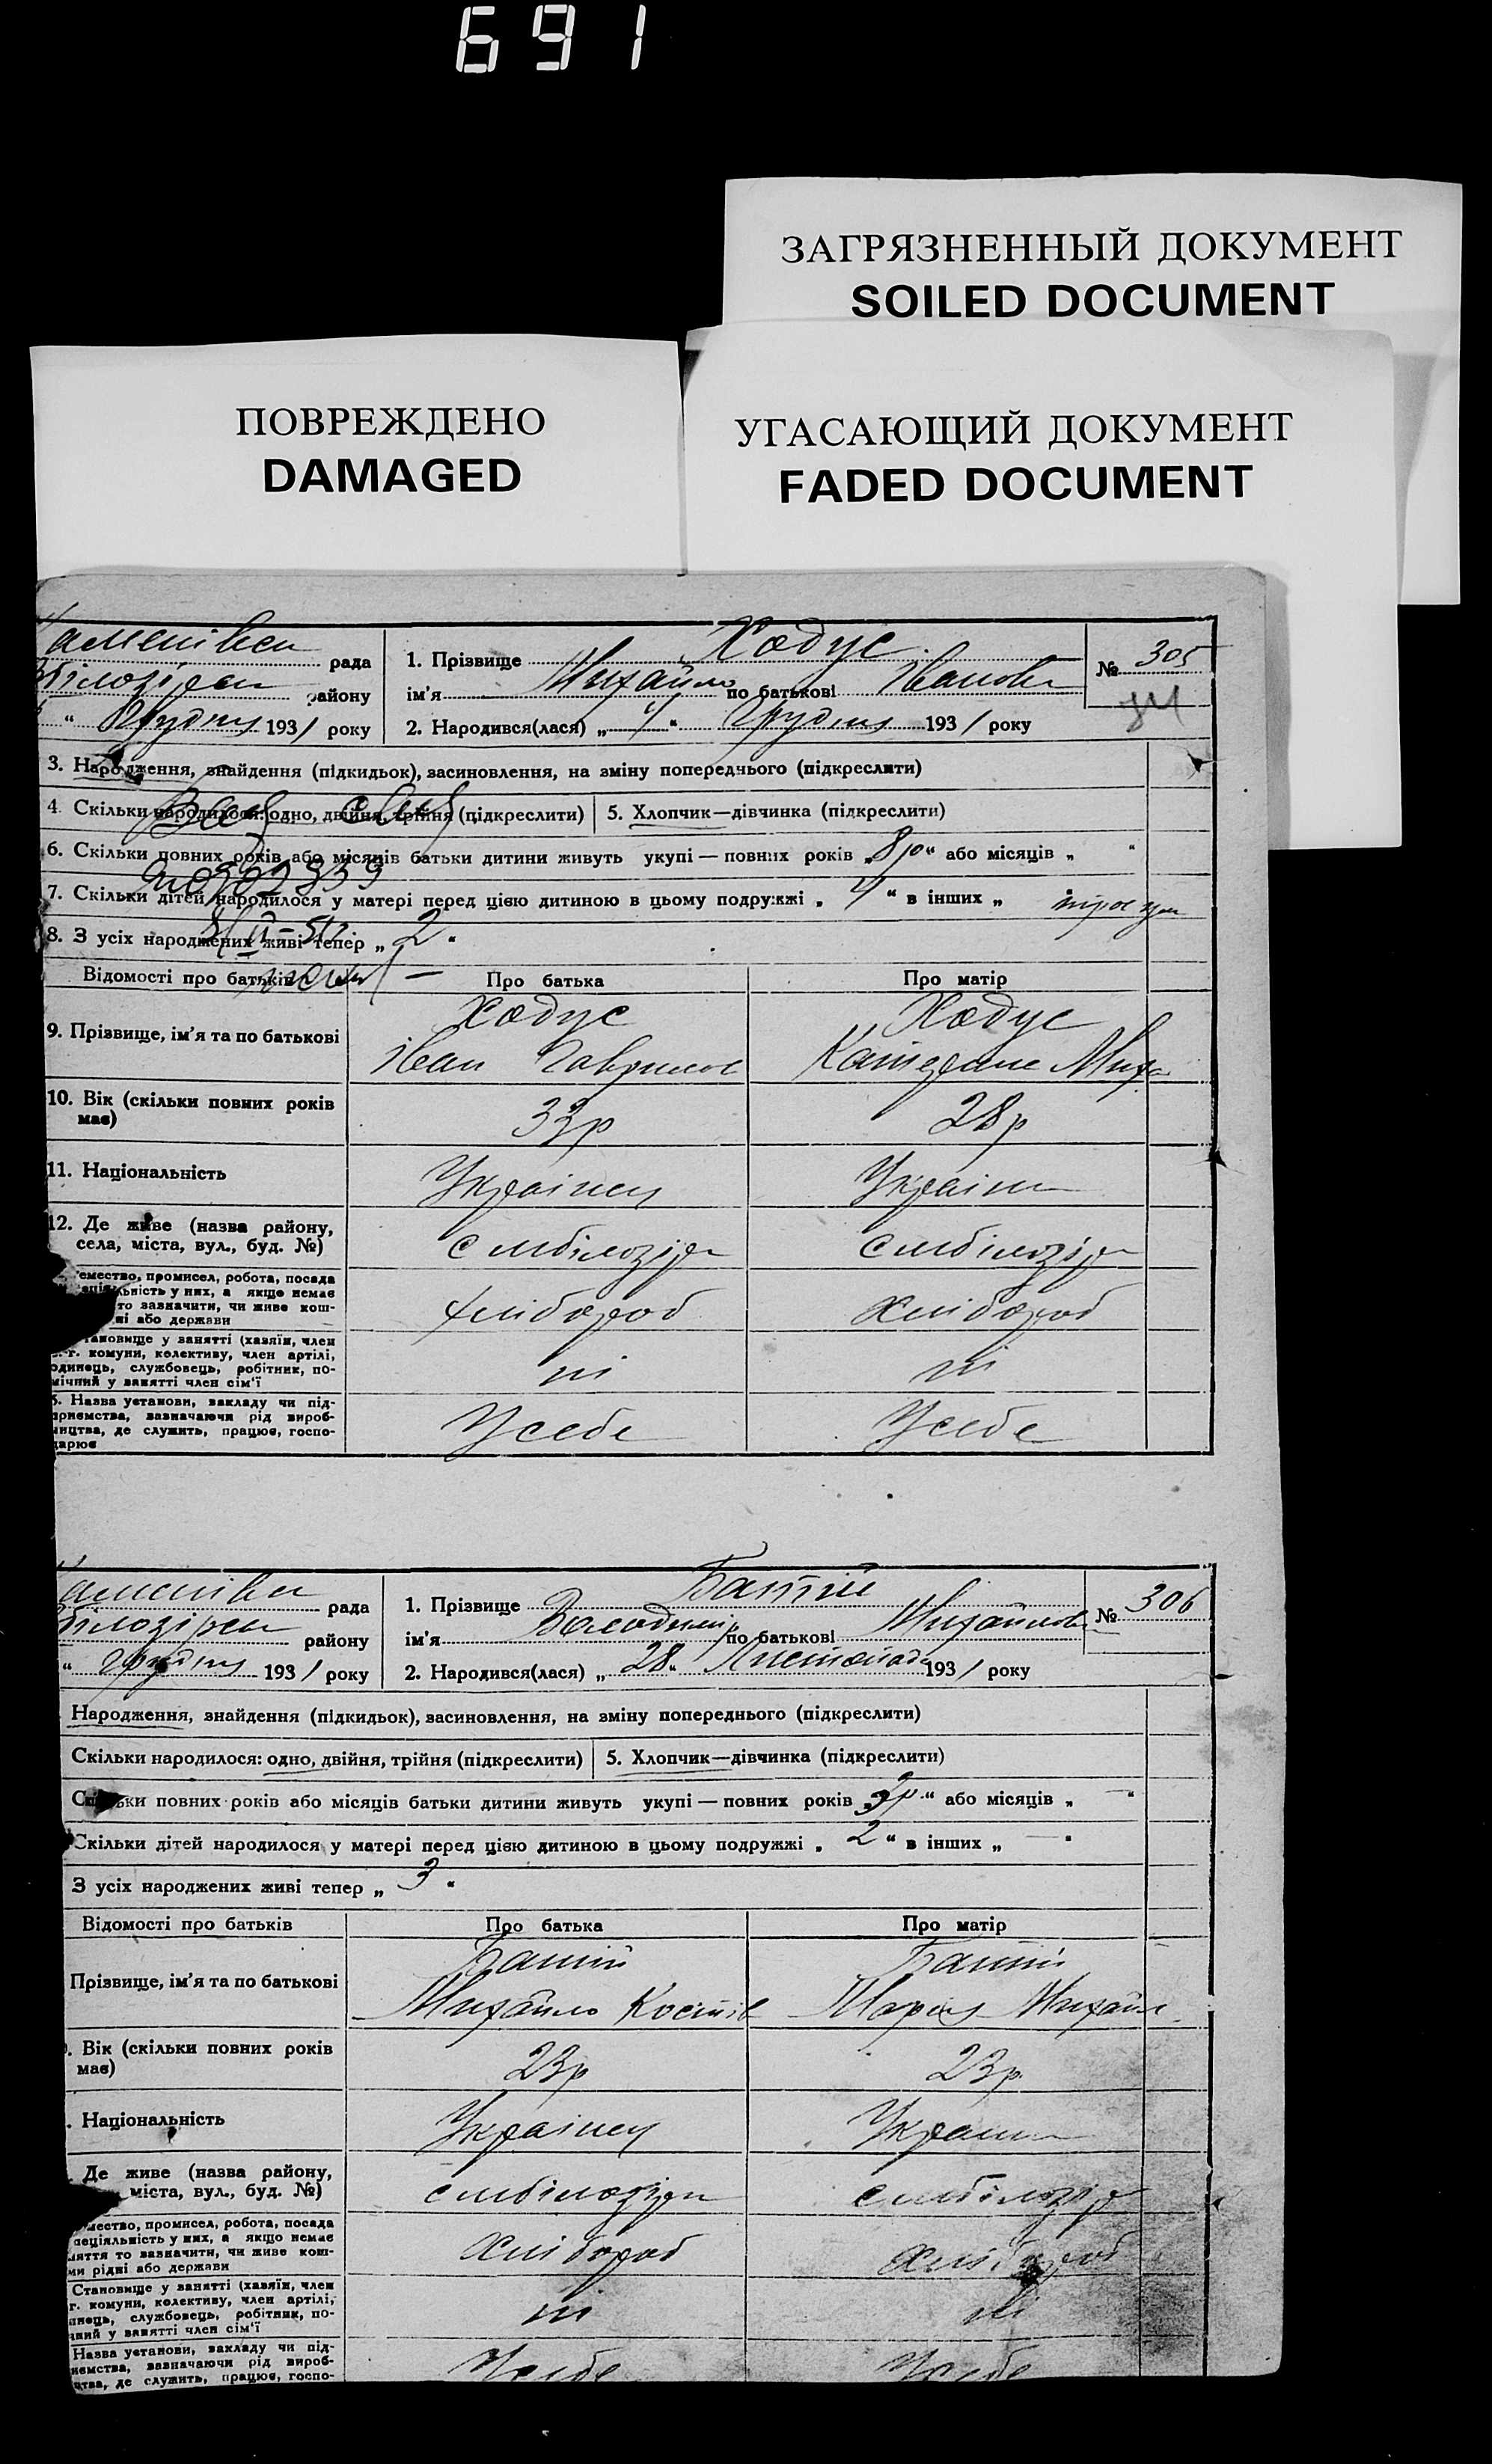 691
ЗАГРЯЗНЕННЫЙ ДОКУМЕНТ
SOILED DOCUMENT
ПОВРЕЖДЕНО
DAMAGED
УГАСАЮЩИЙ ДОКУМЕНТ
FADED DOCUMENT
рада
району
“ Грудня 1931 року
1. Прізвище Ходус
ім’я Михайло по батькові Іванов
2. Народився(лася) „ 4 “ Грудня 1931 року
№ 305
3. Народження, знайдення (підкидьок), засиновлення, на зміну попереднього (підкреслити)
4. Скільки народилося: одно, двійня, трійня (підкреслити) 5. Хлопчик—дівчинка (підкреслити)
6. Скільки повних років або місяців батьки дитини живуть укупі — повних років „ 8р “ або місяців „ “
7. Скільки дітей народилося у матері перед цією дитиною в цьому подружжі „ 4 “ в інших „
8. З усіх народжених живі тепер „ 2 “
Відомості про батьків Про батька Про матір
9. Прізвище, ім’я та по батькові
Ходус Ходус
Іван Гаврилов Катерина Миха
10. Вік (скільки повних років має)
33р 28р
11. Національність
Українец Україн
12. Де живе (назва району,
села, міста, вул., буд. №)
емество, промисел, робота, посада
ність у них, а якщо немає
то зазначити, чи живе кош-
ні або держави
хлібороб хлібороб
тановище у занятті (хазяїн, член
г. комуни, колективу, член артілі,
одинець, службовець, робітник, по-
мічний у занятті член сім’ї
ні ні
5. Назва установи, закладу чи під-
приємства, зазначаючи рід вироб-
ництва, де служить, працює, госпо-
дарює
У себе У себе
рада
району
“ Грудня 1931 року
1. Прізвище Батій
ім’я Володимир по батькові Михайлов
2. Народився(лася) „ 28 “ Листопада 1931 року
№ 306
Народження, знайдення (підкидьок), засиновлення, на зміну попереднього (підкреслити)
Скільки народилося: одно, двійня, трійня (підкреслити) 5. Хлопчик—дівчинка (підкреслити)
Скільки повних років або місяців батьки дитини живуть укупі — повних років „ “ або місяців „ — “
Скільки дітей народилося у матері перед цією дитиною в цьому подружжі „ 2 “ в інших „ — “
З усіх народжених живі тепер „ 3 “
Відомості про батьків Про батька Про матір
Прізвище, ім’я та по батькові
Батій Батій
Михайло Костів Мария Михайл
Вік (скільки повних років
має)
23р 23р
Національність
Українец Україн
Де живе (назва району,
міста, вул., буд. №)
мество, промисел, робота, посада
пеціяльність у них, а якщо немає
няття то зазначити, чи живе кош-
ми рідні або держави
хлібороб хлібороб
Становище у занятті (хазяїн, член
г. комуни, колективу, член артілі,
инець, службовець, робітник, по-
чний у занятті член сім’ї
ні ні
Назва установи, закладу чи під-
иємства, зазначаючи рід вироб-
цтва, де служить, працює, госпо-
У себе У себе